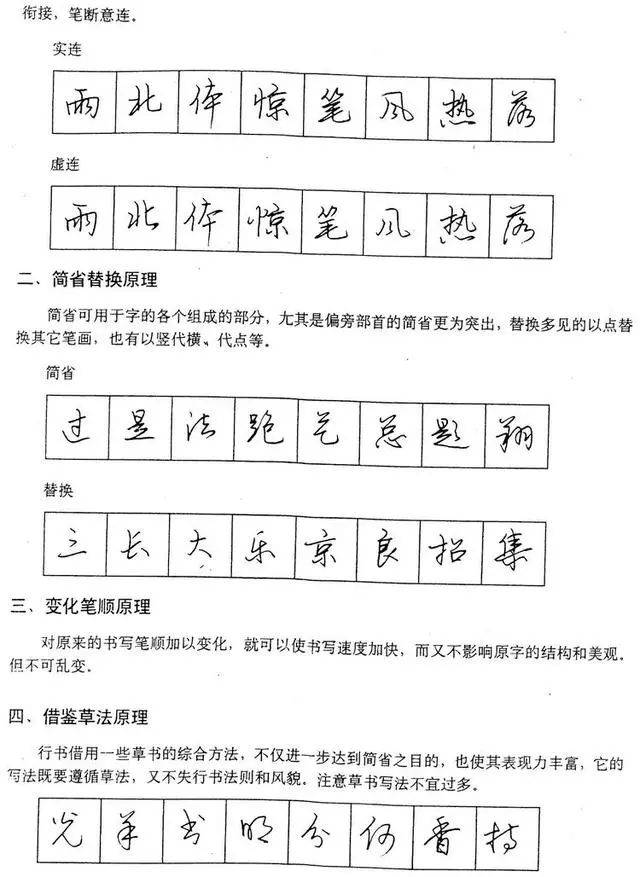 衔接，笔断意连。
实连
雨 北 体 惊 笔 风 热 落
虚连
雨 北 体 惊 笔 风 热 落
二、简省替换原理
简省可用于字的各个组成的部分，尤其是偏旁部首的简省更为突出，替换多见的以点替
换其它笔画，也有以竖代横、代点等。
简省
过 是 法 跑 气 总 题 翔
替换
三 长 大 乐 京 良 招 集
三、变化笔顺原理
对原来的书写笔顺加以变化，就可以使书写速度加快，而又不影响原字的结构和美观。
但不可乱变。
四、借鉴草法原理
行书借用一些草书的综合方法，不仅进一步达到简省之目的，也使其表现力丰富，它的
写法既要遵循草法，又不失行书法则和风貌。注意草书写法不宜过多。
光 羊 书 明 分 何 香 持